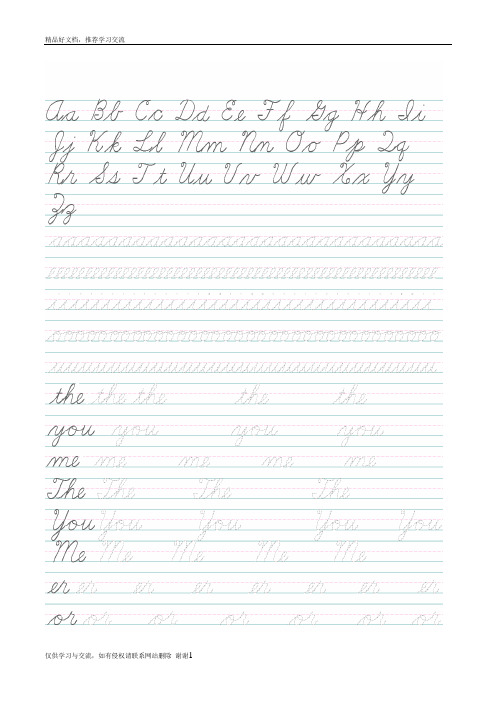 精品好文档，推荐学习交流
Aa Bb Cc Dd Ee Ff Gg Hh Ii
Jj Kk Ll Mm Nn Oo Pp Qq
Rr Ss Tt Uu Vv Ww Xx Yy
Zz
the the the the the
you you you you
me me me me me
The The The The
You You You You You
Me Me Me Me Me
er er er er er er er er
or or or or or or or
仅供学习与交流，如有侵权请联系网站删除 谢谢1